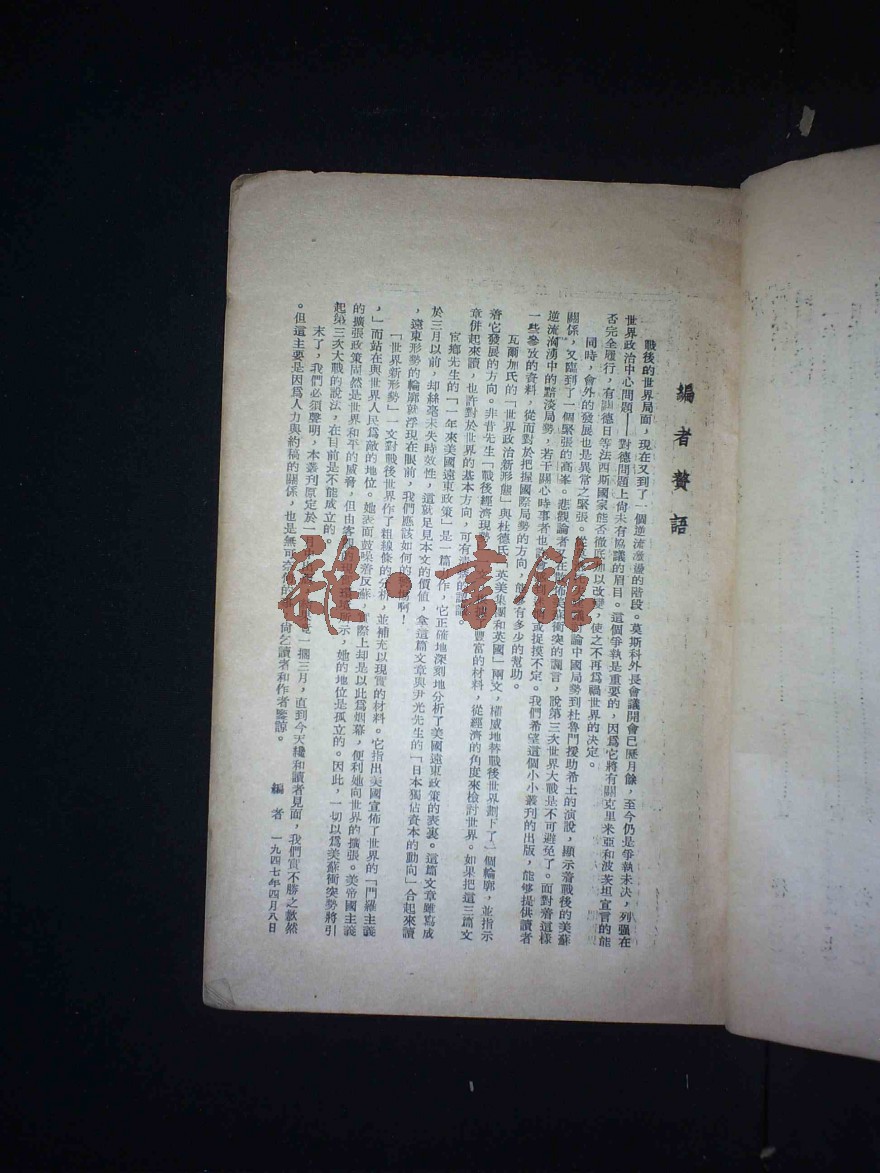 編者贅語
戰後的世界局面，現在又到了一個逆流激盪的階段。莫斯科外長會議開會已歷月餘，至今仍是爭執未決，列强在
世界政治中心問題——對德問題上尙未有協議的眉目。這個爭執是重要的，因爲它將有關克里米亞和波茨坦宣言的能
否完全履行，有關德日等法西斯國家能否徹底加以改變，使之不再爲禍世界的決定。
同時，會外的發展也是異常之緊張。從 論中國局勢到杜魯門援助希土的演說，顯示着戰後的美蘇
關係，又臨到了一個緊張的高峯。悲觀論者 衝突的讕言，說第三次世界大戰是不可避免了。面對着這樣
逆流洶湧中的黯淡局勢，若干關心時事者也許 或捉摸不定。我們希望這個小小叢刊的出版，能够提供讀者
一些參攷的資料，從而對於把握國際局勢的方向，能够有多少的幫助。
瓦爾加氏的「世界政治新形態」與杜德氏 英美集團和英國」兩文，權威地替戰後世界劃下了一個輪廓，並指示
着它發展的方向。非昔先生「戰後經濟現勢 豐富的材料，從經濟的角度來檢討世界。如果把這三篇文
章併起來讀，也許對於世界的基本方向，可有
宦鄉先生的「一年來美國遠東政策」是一篇 作，它正確地深刻地分析了美國遠東政策的表裏。這篇文章雖寫成
於三月以前，却絲毫未失時效性，這就足見本文的價値，拿這篇文章與尹光先生的「日本獨佔資本的動向」合起來讀
，遠東形勢的輪廓就浮現在眼前，我們應該如何的 啊！
「世界新形勢」一文對戰後世界作了粗線條的分析，並補充以現實的材料。它指出美國宣佈了世界的「門羅主義
，」而站在與世界人民爲敵的地位。她表面鼓噪着反蘇，實際上却是以此爲烟幕，便利她向世界的擴張。美帝國主義
的擴張政策固然是世界和平的威脅，但由客觀的 示，她的地位是孤立的。因此，一切以爲美蘇衝突勢將引
起第三次大戰的說法，在目前是不能成立的。
末了，我們必須聲明，本叢刊原定於一月 一擱三月，直到今天纔和讀者見面，我們實不勝之歉然
。但這主要是因爲人力與約稿的關係，也是無可奈何的 尙乞讀者和作者鑒諒。
編者 一九四七年四月八日
雜·書館